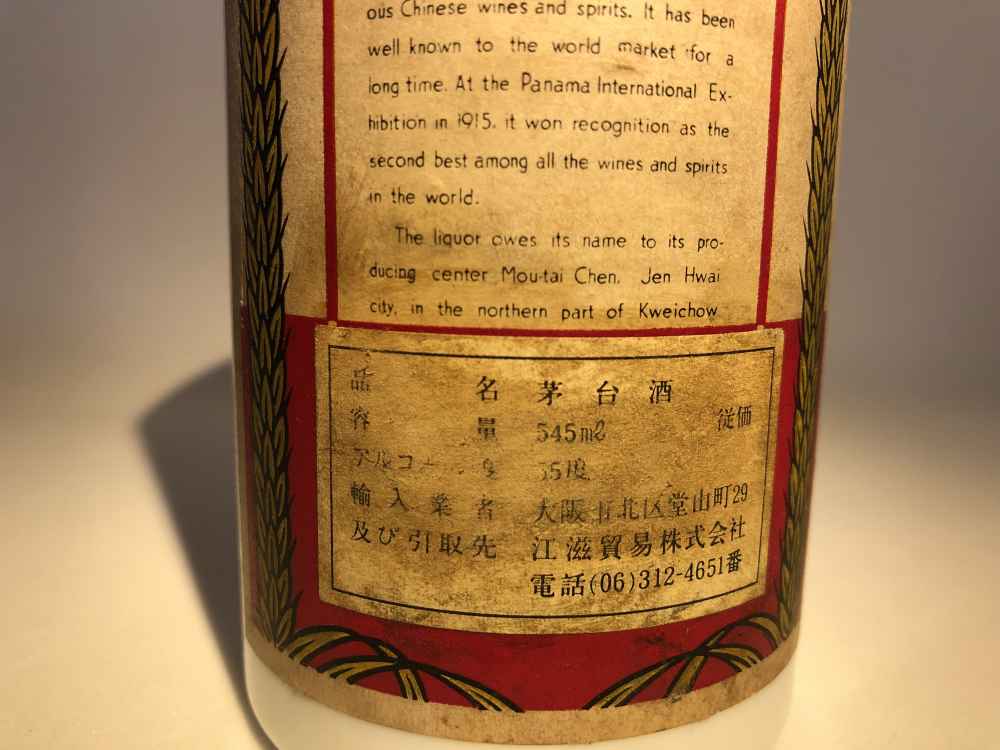 ous Chinese wines and spirits. It has been
well known to the world market for a
long time. At the Panama International Ex-
hibition in 1915, it won recognition as the
second best among all the wines and spirits
in the world.
The liquor owes its name to its pro-
ducing center Mou-tai Chen, Jen Hwai
city, in the northern part of Kweichow
品名 茅台酒
容量 545mℓ 従価
アルコール 度 55度
輸入業者 大阪市北区堂山町29
及び引取先 江滋貿易株式会社
電話(06)312-4651番